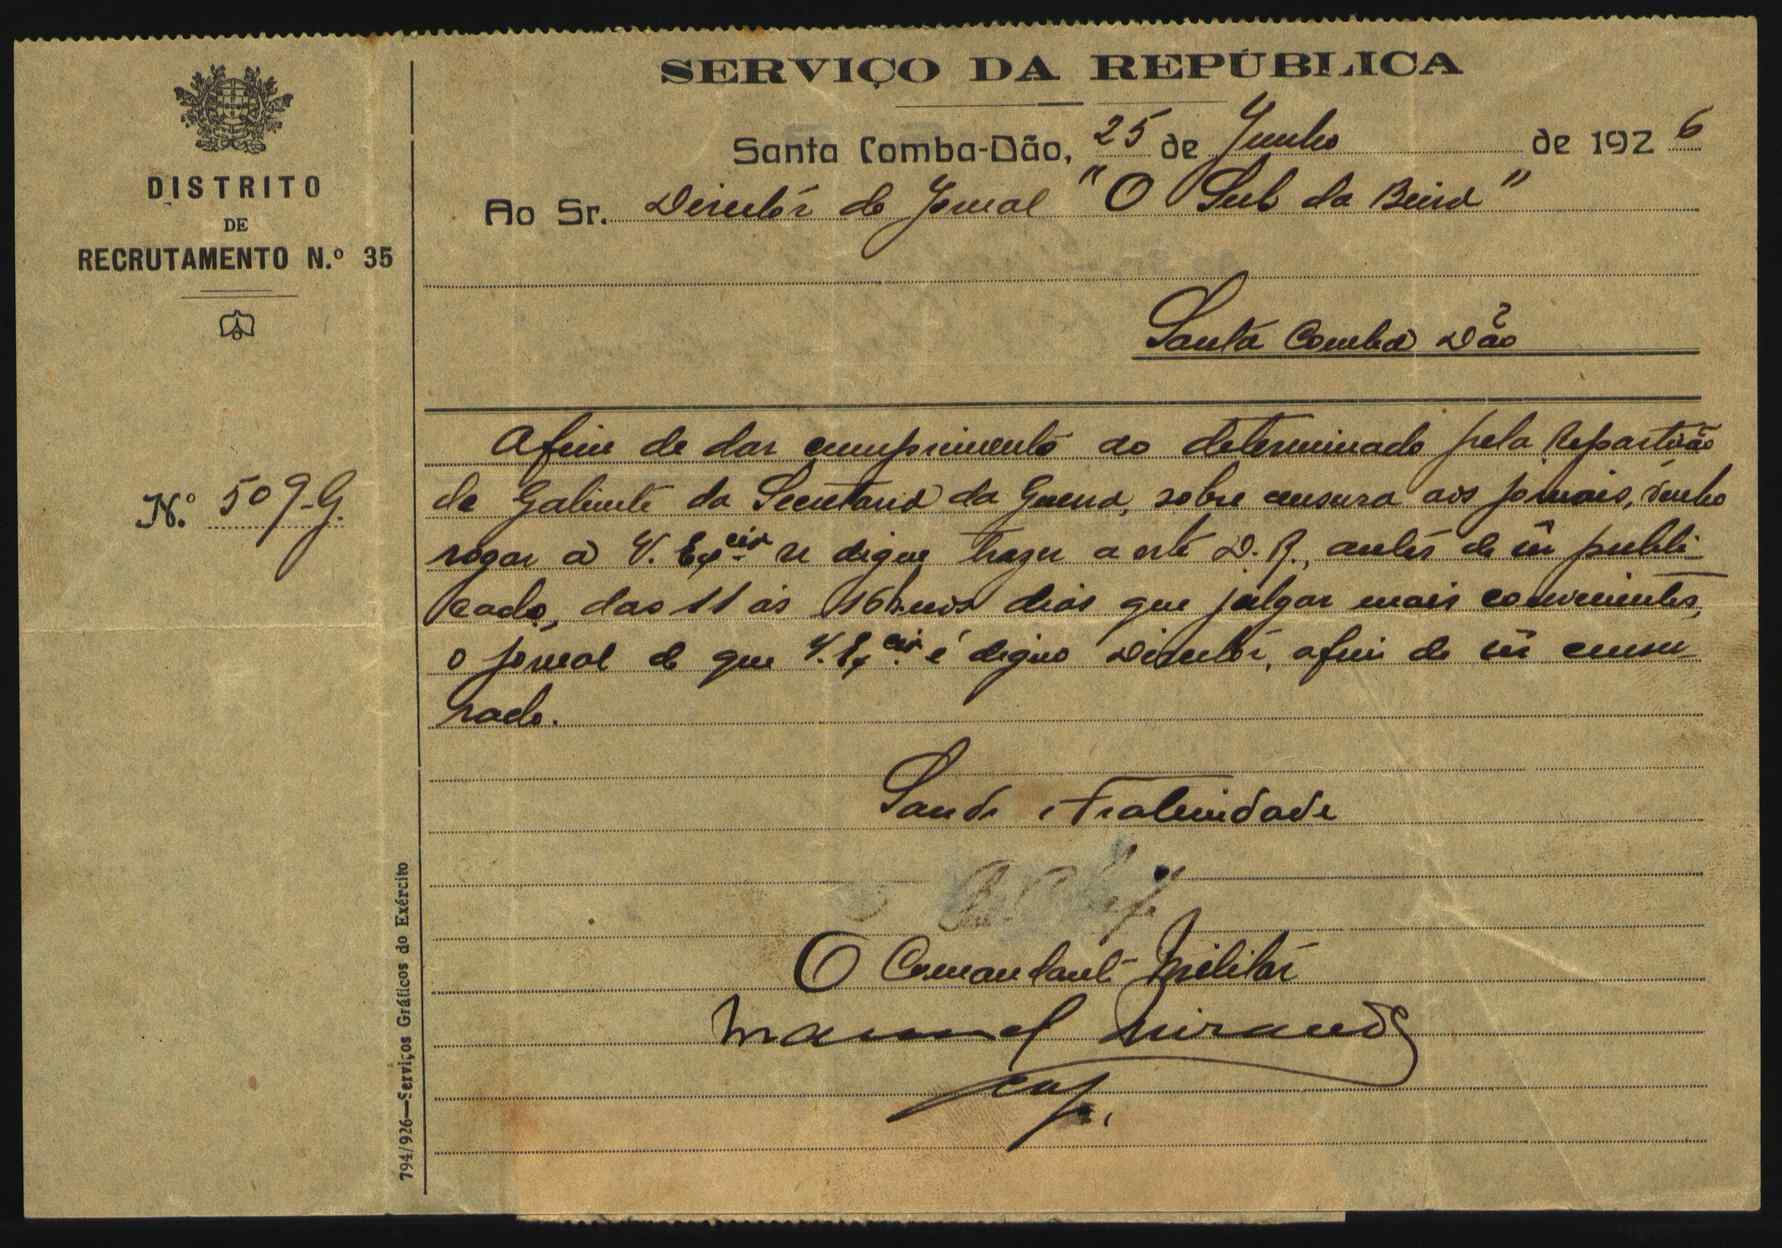 SERVIÇO DA REPÚBLICA
Santa Comba-Dão, 25 de Junho de 1926
Ao Sr. Directór do Jornal "O Sul da Beira"
Santa Comba Dão
DISTRITO
DE
RECRUTAMENTO N.º 35
N.º 509-G.
Afim de dar cumprimento ao determinado pela Repartição
do Gabinete da Secretaria da Guerra, sobre censura aos jornais, venho
rogar a V. Ex.cia se digne trazer a este D. R., antes de ser publi-
cado, das 11 ás 16 h. nos dias que julgar mais convenientes,
o jornal de que V. Ex.cia é digno Directór, afim de ser censu
rado.
Saude e Fraternidade
O Comandante Militar
Manuel Miranda
Cap.
794/926—Serviços Gráficos do Exército